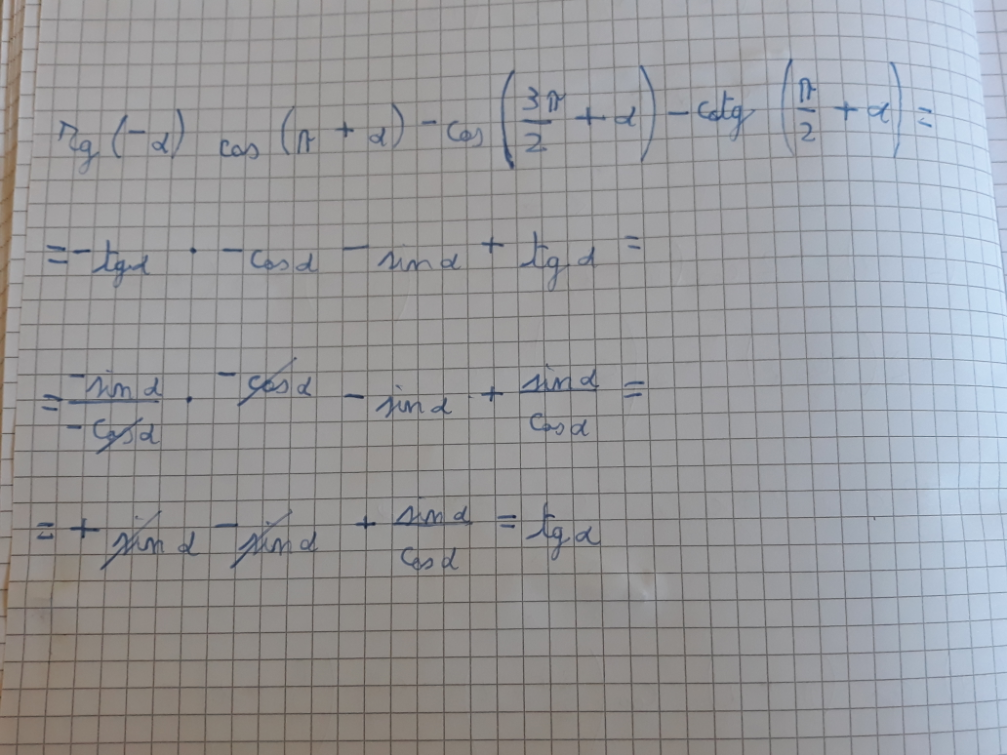 tg (-α) cos (π + α) - cos (3π/2 + α) - cotg (π/2 + α) =
= - tgα · - cosα - sinα + tgα =
= -sinα/-cosα · - cosα - sinα + sinα/cosα =
= + sinα - sinα + sinα/cosα = tgα